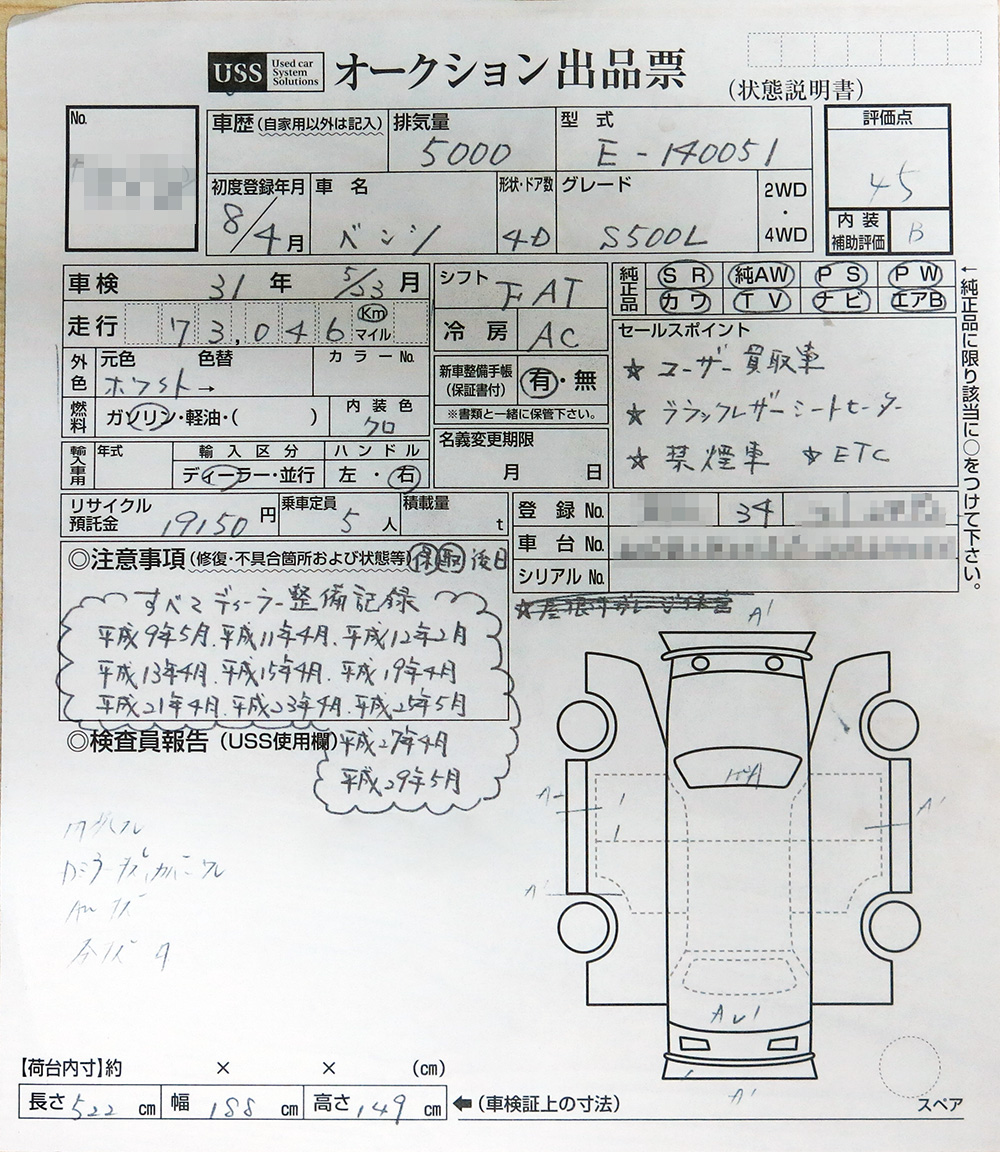 USS Used car System Solutions オークション出品票
(状態説明書)
No.
車歴(自家用以外は記入)
排気量 5000
型式 E-140051
評価点 45
初度登録年月 8/4月
車名 ベンツ
形状・ドア数 4D
グレード S500L
2WD・4WD
内装補助評価 B
車検 31年 5/23月
シフト FAT
純正品 SR 純AW PS PW
カワ TV ナビ エアB
←純正品に限り該当に○をつけて下さい。
走行 73,046 Km マイル
冷房 AC
セールスポイント
☆ ユーザー買取車
☆ ブラックレザーシートヒーター
☆ 禁煙車 ☆ ETC
外色 元色 色替 カラーNo.
ホワイト→
新車整備手帳(保証書付) 有・無
※書類と一緒に保管下さい。
燃料 ガソリン・軽油・( )
内装色 クロ
名義変更期限 月 日
輸入車用 年式 輸入区分 ハンドル
ディーラー・並行 左・右
リサイクル預託金 19150円
乗車定員 5人
積載量 t
登録No. 34
車台No.
シリアルNo.
◎注意事項(修復・不具合箇所および状態等) 保 取 後日
すべてディーラー整備記録
平成9年5月.平成11年4月.平成12年2月
平成13年4月.平成15年4月.平成19年4月
平成21年4月.平成23年4月.平成25年5月
◎検査員報告(USS使用欄) 平成27年4月
平成29年5月
A'
A'
A'
A'
【荷台内寸】約 × × (cm)
長さ 522 cm 幅 188 cm 高さ 149 cm ←(車検証上の寸法)
スペア